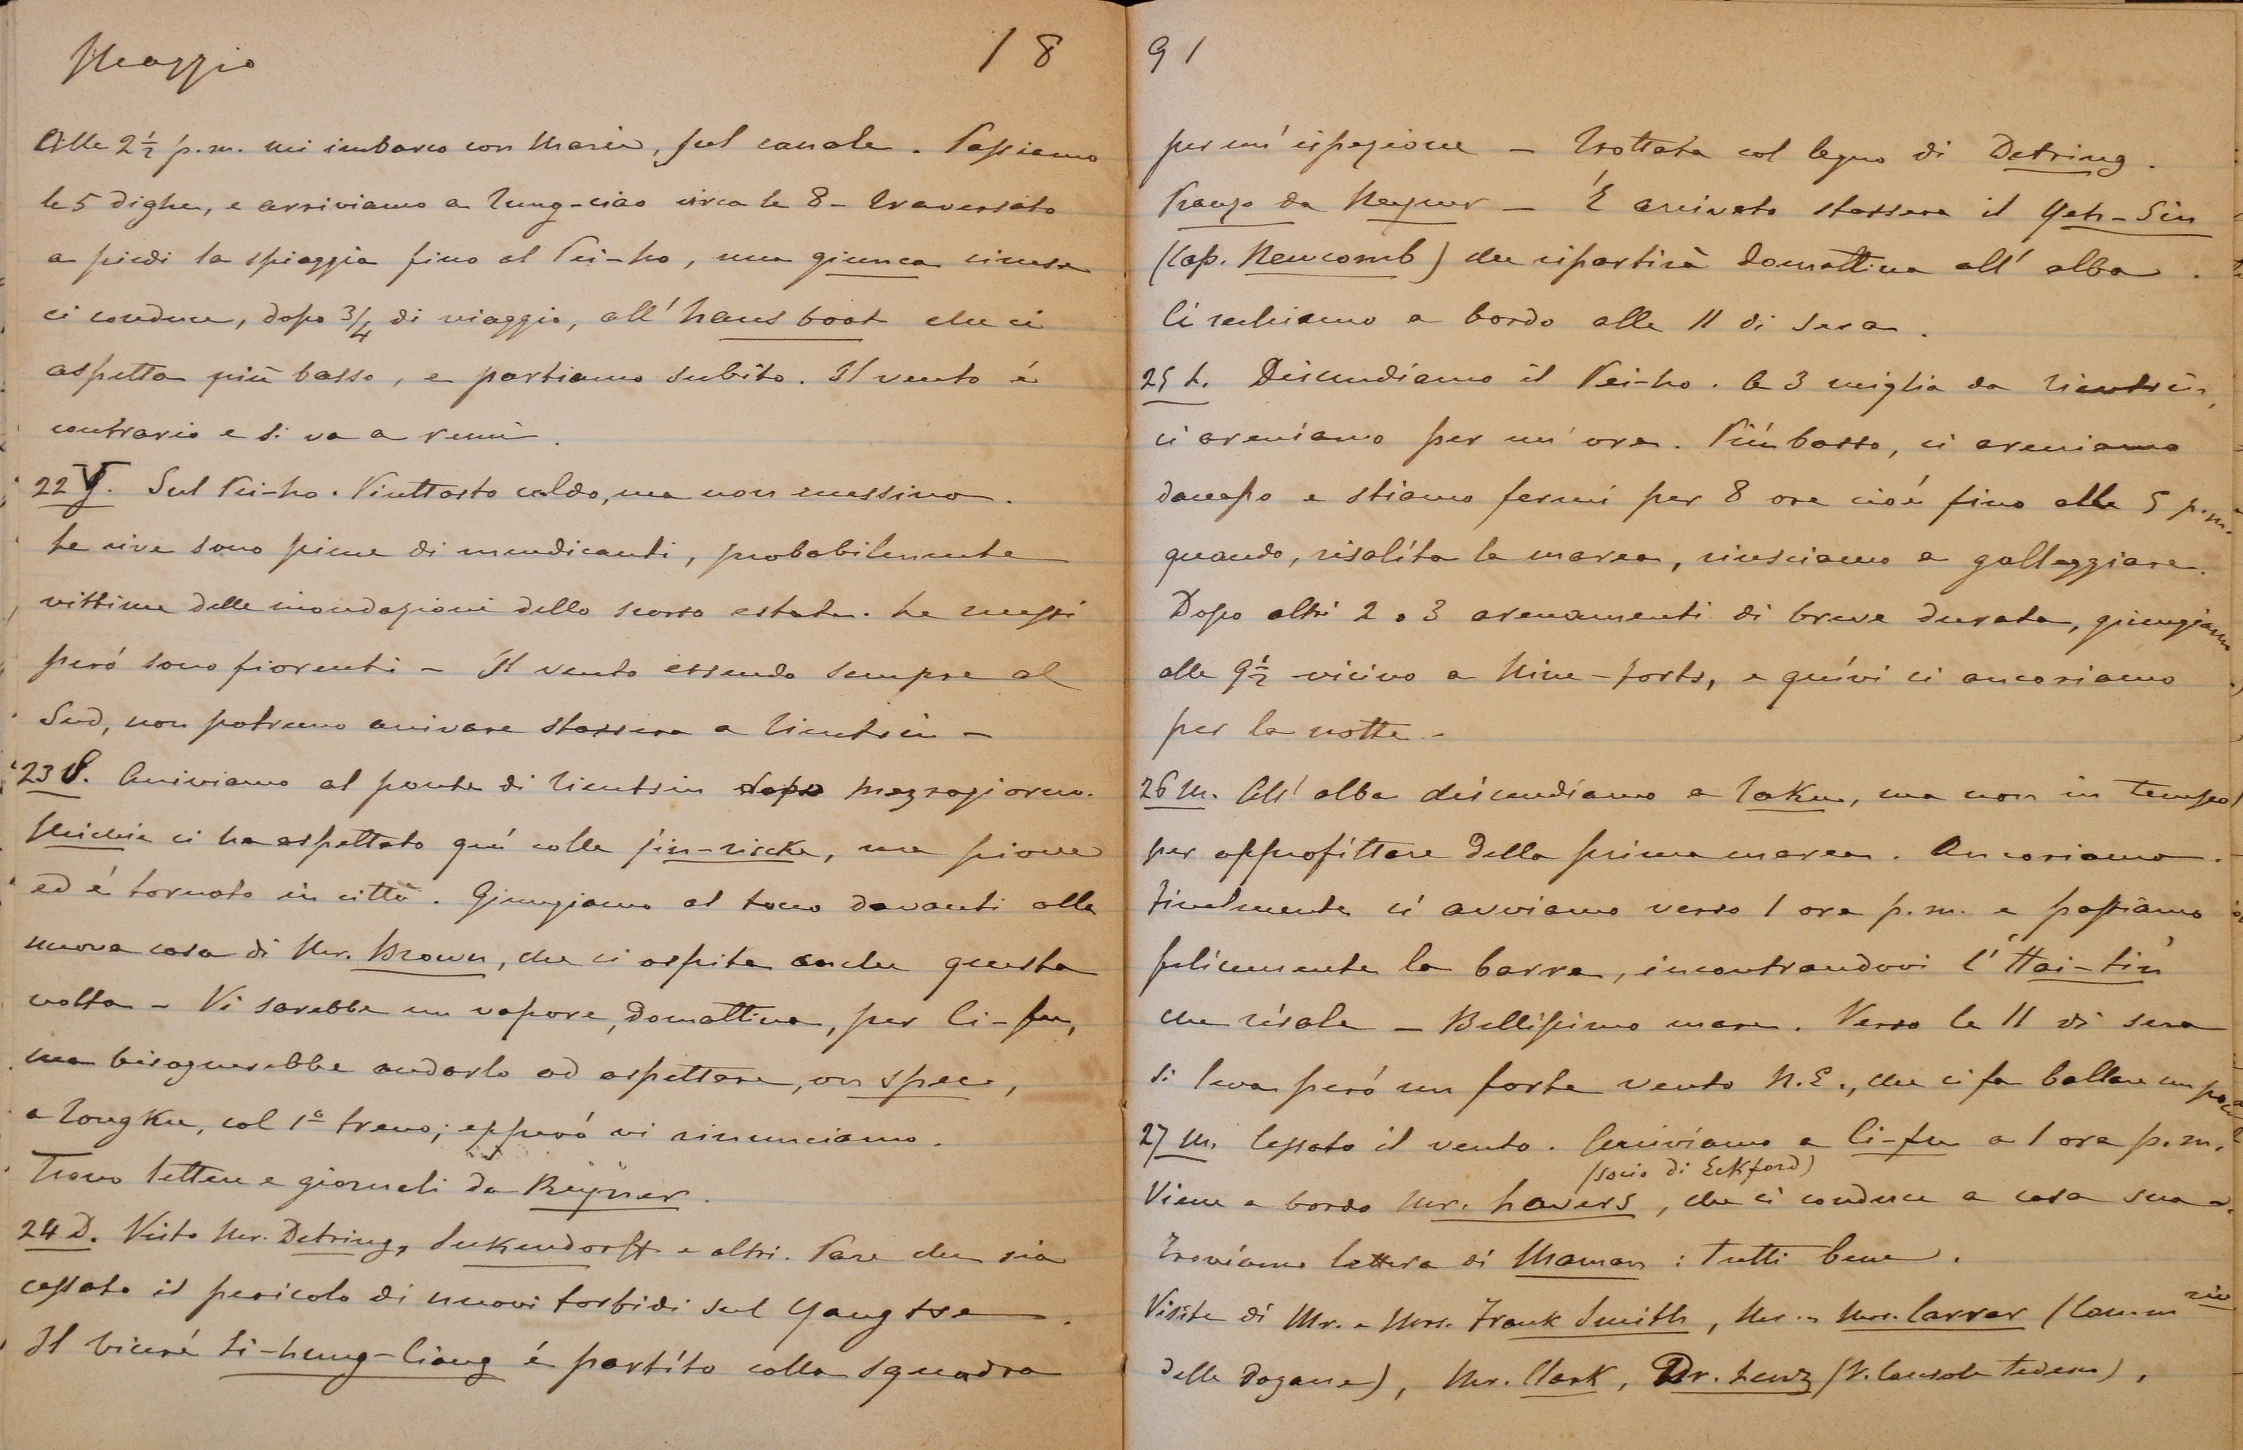 Maggio 18
Alle 2½ p.m. mi imbarco con Maria, sul canale. Passiamo
le 5 dighe, e arriviamo a Tung-ciao circa le 8 - Traversato
a piedi la spiaggia fino al Pei-ho, una giunca cinese
ci conduce, dopo ¾ di viaggio, all'haus boat che ci
aspetta più basso, e partiamo subito. Il vento é
contrario e si va a remi.
22 V. Sul Pei-ho. Piuttosto caldo, ma non moltissimo.
Le rive sono piene di mendicanti, probabilmente
vittime delle inondazioni dello scorso estate. Le messi
però sono fiorenti - Il vento essendo sempre al
Sud, non potremo arrivare stassera a Tientsin -
23 S. Arriviamo al ponte di Tientsin dopo mezzogiorno.
Michie ci ha aspettato quí colle jin-ricke, ma piove
ed é tornato in città. Giungiamo al tocco davanti alla
nuova casa di Mr. Brown, che ci ospita anche questa
volta - Vi sarebbe un vapore, domattina, per Ci-fu,
ma bisognerebbe andarlo ad aspettare, on spec,
a Tongku, col 1º treno; epperó vi rinunciamo.
Trovo lettere e giornali da Reÿner.
24 D. Visto Mr. Detring, Seckendorff e altri. Pare che sia
cessato il pericolo di nuovi torbidi sul Yangtse.
Il viceré Li-hung-ciang é partíto colla squadra
91
per un'ispezione - Trottata col legno di Detring.
Pranzo da Reyner - É arrivato stassera il Yeh-Sin
(Cap. Newcomb) che ripartirà domattina all'alba.
Ci rechiamo a bordo alle 11 di sera.
25 L. Discendiamo il Pei-ho. A 3 miglia da Tientsin,
ci areniamo per un'ora. Più basso, ci areniamo
dacapo e stiamo fermi per 8 ore cioé fino alle 5 p.m.
quando, risalíta la marea, riusciamo a galleggiare.
Dopo altri 2 o 3 arenamenti di breve durata, giungiamo
alle 9½ vicino a Nine-forts, e quívi ci ancoriamo
per la notte -
26 M. All'alba discendiamo a Taku, ma non in tempo
per approfittare della prima marea. Ancoriamo.
Finalmente ci avviamo verso 1 ora p.m. e passiamo
felicemente la barra, incontrandovi l'"Hai-tin"
che risale - Bellissimo mare. Verso le 11 di sera
si leva peró un forte vento N.E., che ci fa ballare un poco
27 M. Cessato il vento. Arriviamo a Ci-fu a 1 ora p.m.
(socio di Eckford)
Viene a bordo Mr. Havers, che ci conduce a casa sua.
Troviamo lettera di Maman: tutti bene.
Visite di Mr. e Mrs. Frank Smith, Mr. e Mrs. Carrar (Comm rio
delle Dogane), Mr. Clark, Dr. Lenz (V. Console Tedesco),